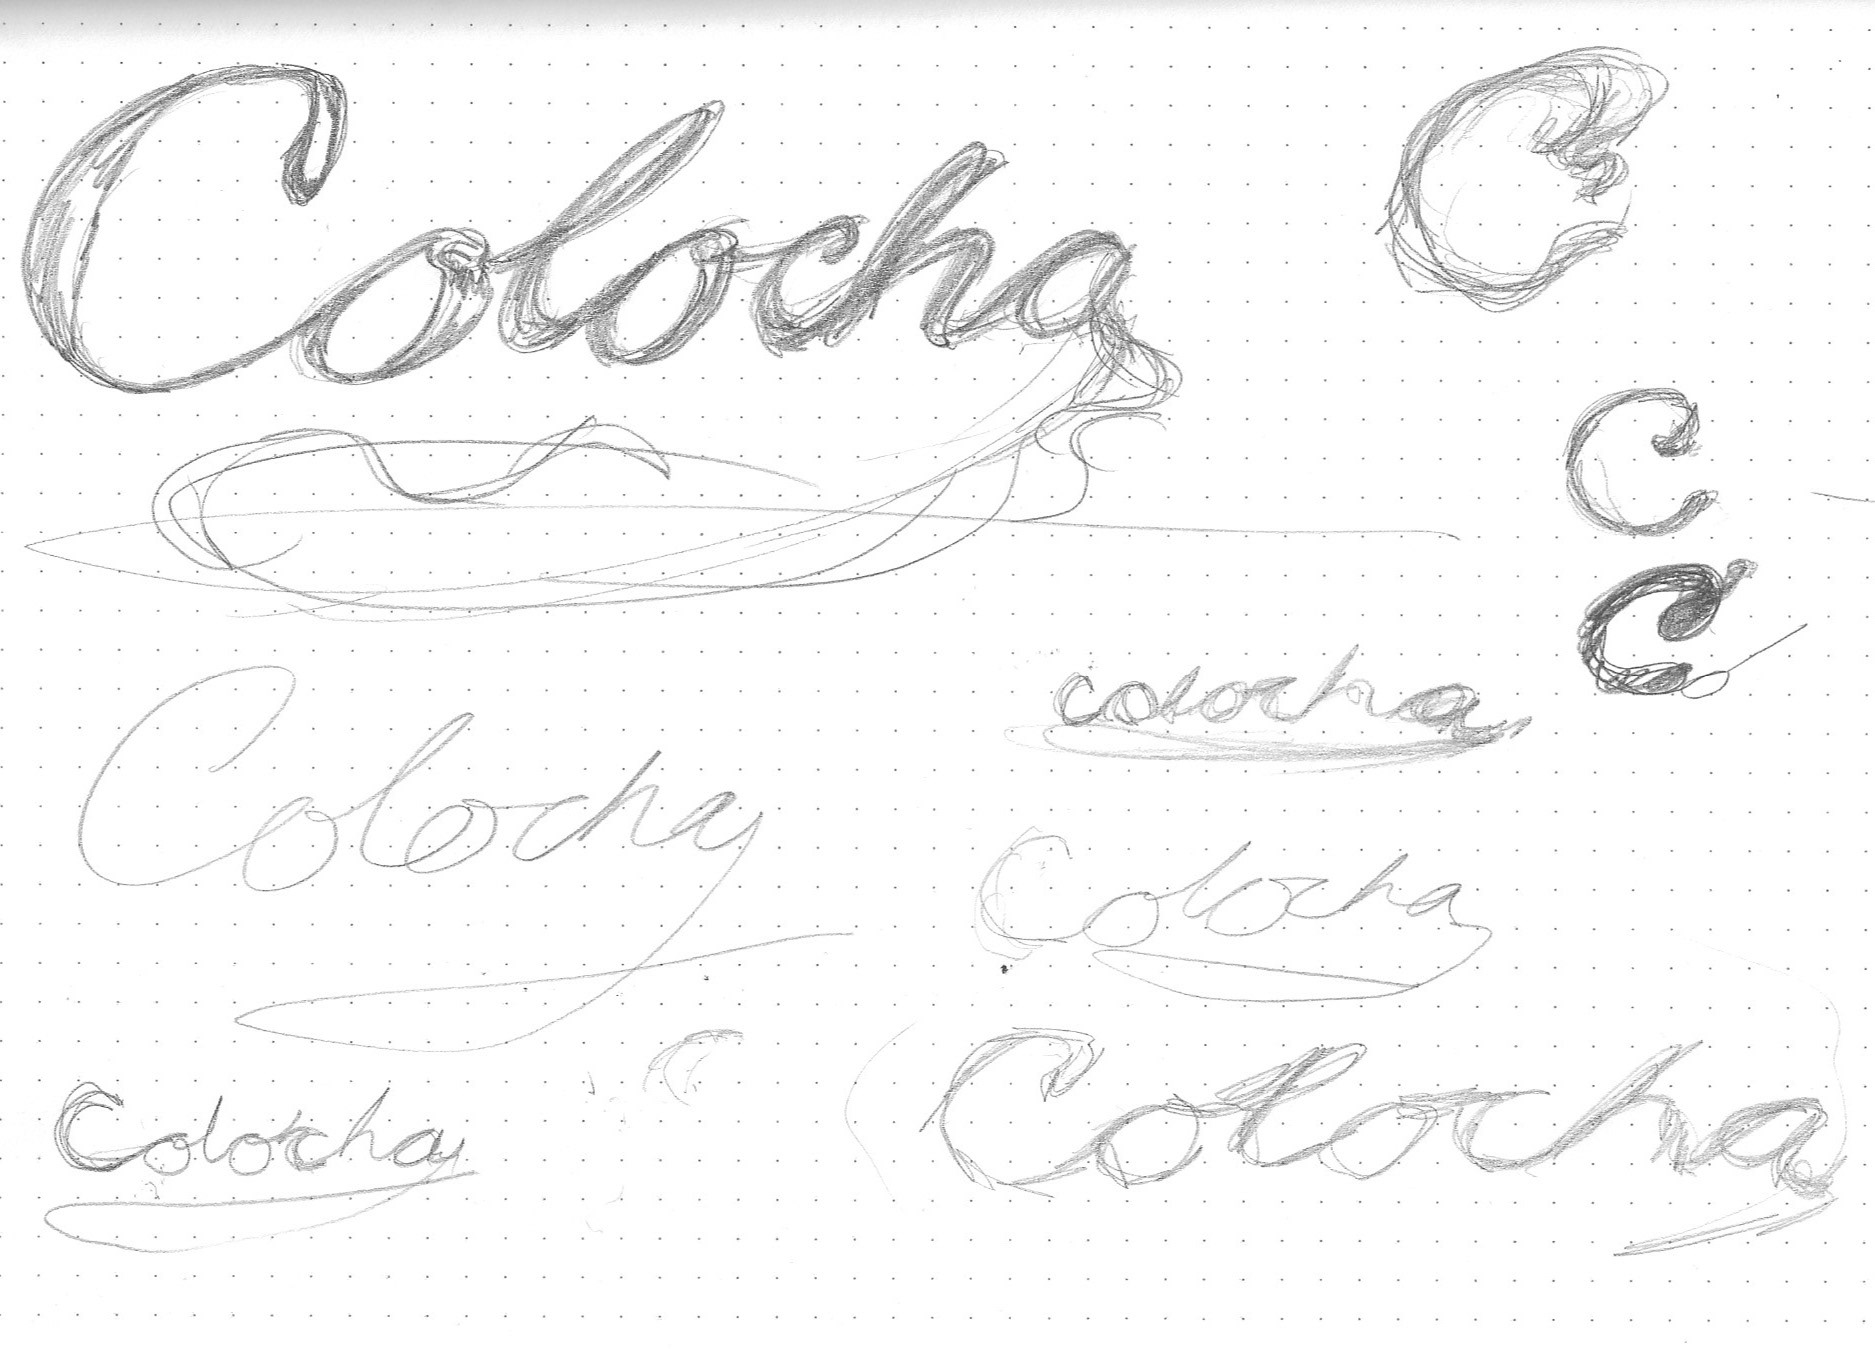 Colocha
C
C
C
Colocha
colocha
Colocha
Colocha
C
Colocha